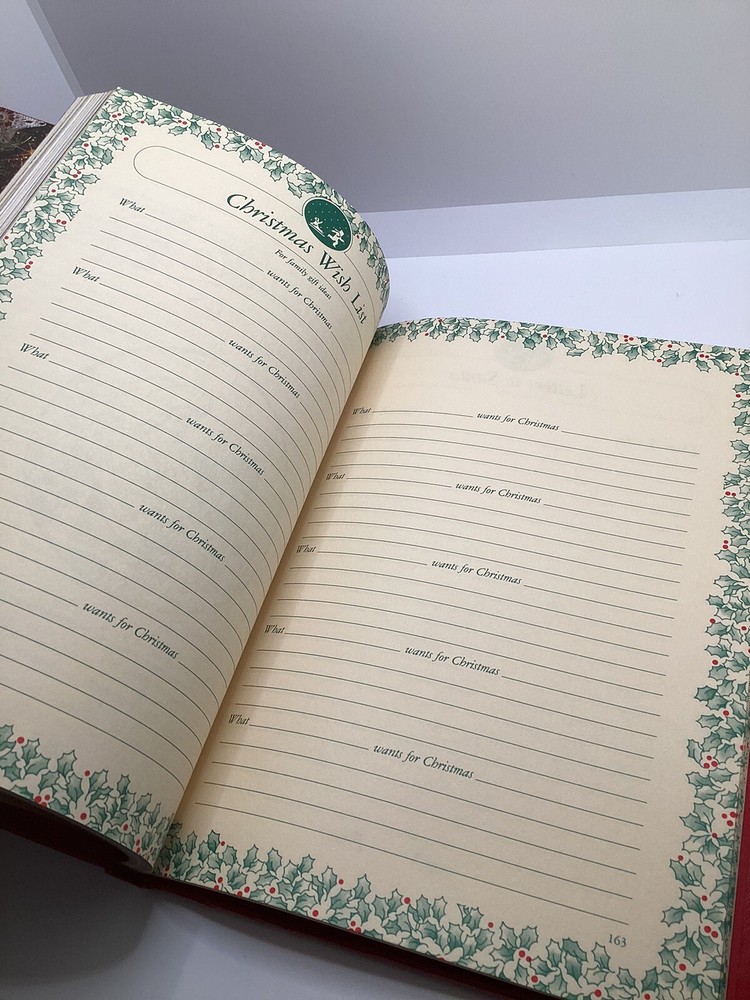 Christmas Wish List
For family gift ideas
What wants for Christmas
What wants for Christmas
What wants for Christmas
wants for Christmas
wants for Christmas
What wants for Christmas
What wants for Christmas
What wants for Christmas
What wants for Christmas
What wants for Christmas
163